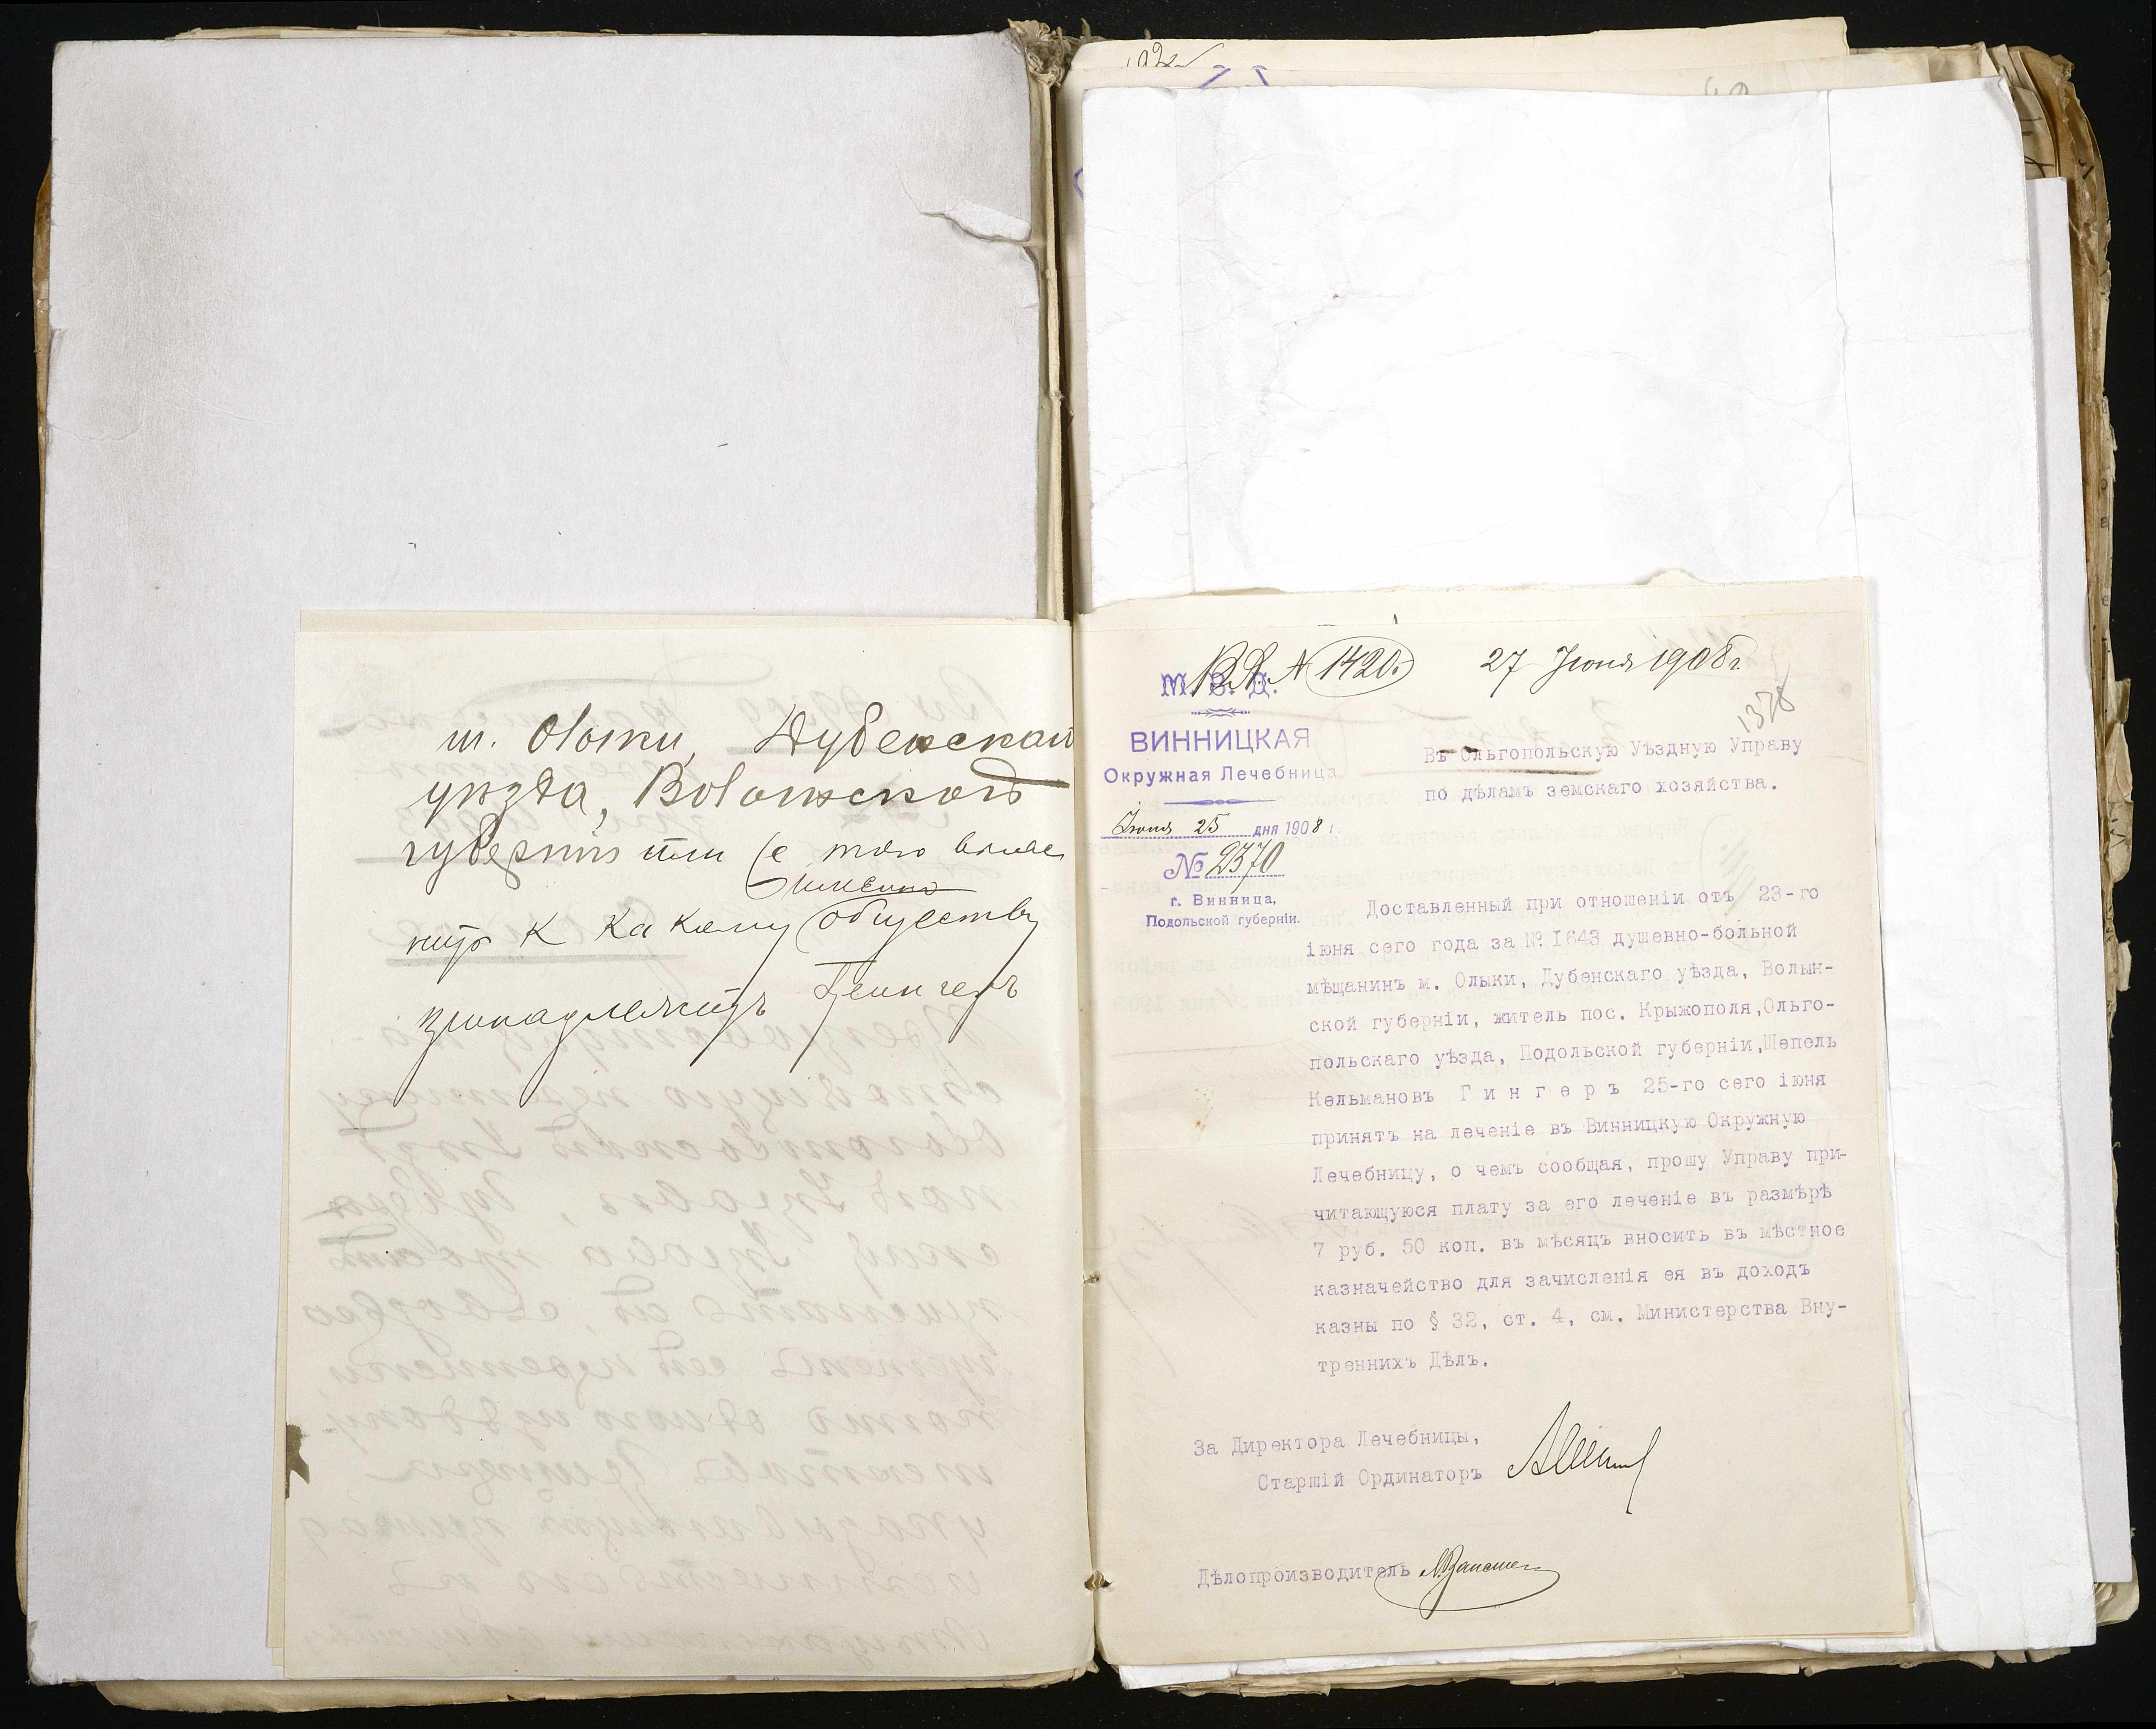 м. Олыки, Дубенскаго
уѣзда, Волынской
губерніи или (с того выяс
нитъ к какому обществу
принадлежитъ Гингеръ
В.А. № 1420.
27 Іюня 1908 г.
1378
М. В. Д.
ВИННИЦКАЯ
Окружная Лечебница
Іюня 25 дня 1908 г.
№ 2370
г. Винница,
Подольской губерніи.
Въ Ольгопольскую Уѣздную Управу
по дѣламъ земскаго хозяйства.
Доставленный при отношеніи отъ 23-го
іюня сего года за № I643 душевно-больной
мѣщанинъ м. Олыки, Дубенскаго уѣзда, Волын-
ской губерніи, житель пос. Крыжополя,Ольго-
польскаго уѣзда, Подольской губерніи,Шепель
Кельмановъ Г и н г е р ъ 25-го сего іюня
принятъ на леченіе въ Винницкую Окружную
Лечебницу, о чемъ сообщая, прошу Управу при-
читающуюся плату за его леченіе въ размѣрѣ
7 руб. 50 коп. въ мѣсяцъ вносить въ мѣстное
казначейство для зачисленія ея въ доходъ
казны по § 32, ст. 4, см. Министерства Вну-
треннихъ Дѣлъ.
За Директора Лечебницы,
Старшій Ординаторъ
Дѣлопроизводитель